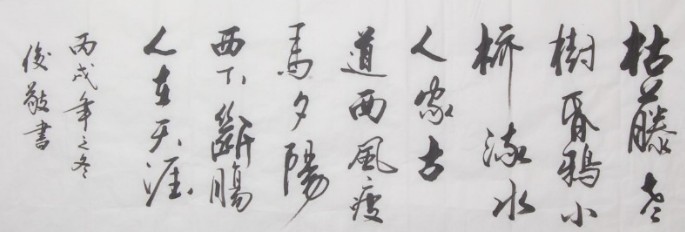 枯藤老
樹昏鴉小
橋流水
人家古
道西風瘦
馬夕陽
西下斷腸
人在天涯
丙戌年之冬
俊敬書